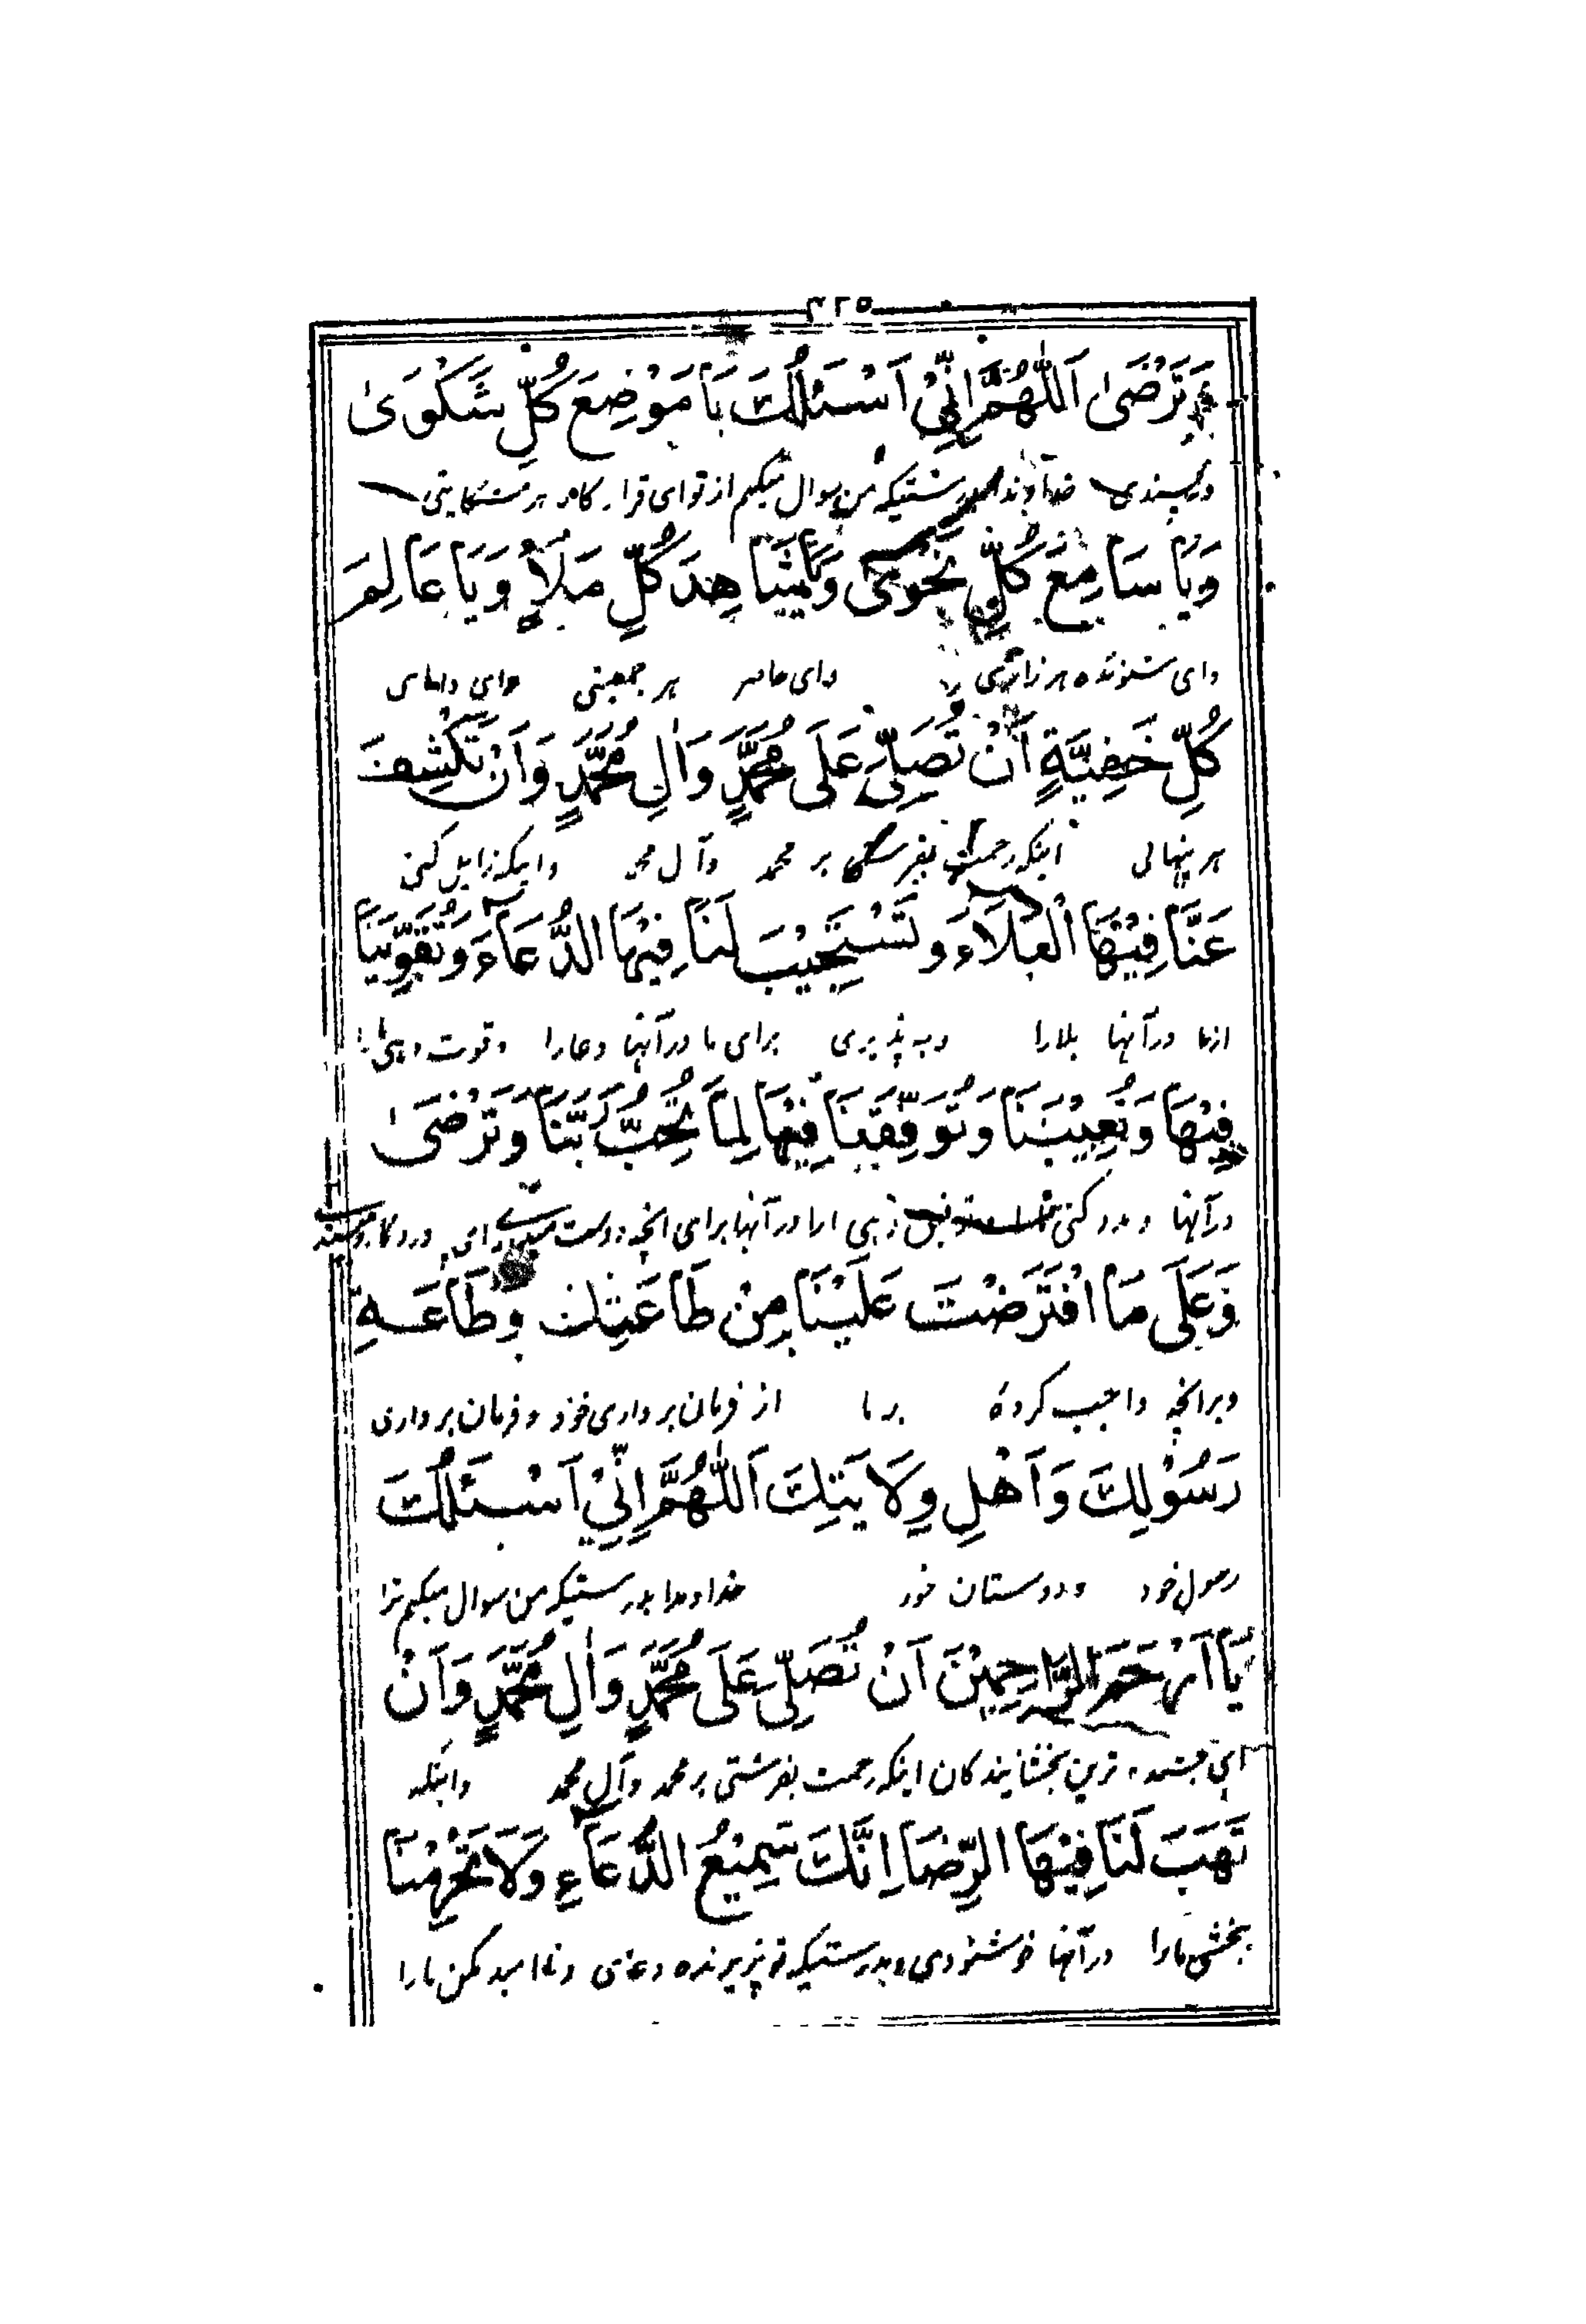 ٣٢٥
وَتَرْضَىٰ اَللّٰهُمَّ اِنِّيْ اَسْئَلُكَ يَا مَوْضِعَ كُلِّ شَكْوَىٰ
خداوندا بدرستیکه من سوال میکنم از تو ای قرار گاه هر شکایتی
وَيَا سَامِعَ كُلِّ نَجْوَىٰ وَيَا شَاهِدَ كُلِّ مَلَأٍ وَيَا عَالِمَ
وای شنونده هر رازی وای حاضر هر جمعیتی وای دانای
كُلِّ خَفِيَّةٍ اَنْ تُصَلِّيَ عَلَى مُحَمَّدٍ وَاٰلِ مُحَمَّدٍ وَاَنْ تَكْشِفَ
هر پنهانی اینکه رحمت بفرستی بر محمد وآل محمد واینکه زایل کنی
عَنَّا فِيْهَا الْبَلَاءَ وَتَسْتَجِيْبَ لَنَا فِيْهَا الدُّعَاءَ وَتُقَوِّيَنَا
ازما درآنها بلارا وبه پذیری برای ما درآنها دعارا وقوت دهی مارا
فِيْهَا وَتُعِيْنَنَا وَتُوَفِّقَنَا فِيْهَا لِمَا تُحِبُّ رَبَّنَا وَتَرْضَىٰ
درآنها ومدد کنی مارا وتوفیق دهی مارا درآنها برای انچه دوست
وَعَلَى مَا افْتَرَضْتَ عَلَيْنَا مِنْ طَاعَتِكَ وَطَاعَةِ
وبرانچه واجب کردهٔ بر ما از فرمان برداری خود وفرمان برداری
رَسُوْلِكَ وَاَهْلِ وِلَايَتِكَ اَللّٰهُمَّ اِنِّيْ اَسْئَلُكَ
رسول خود ودوستان خود خداوندا بدرستیکه من سوال میکنم ترا
يَا اَرْحَمَ الرَّاحِمِيْنَ اَنْ تُصَلِّيَ عَلَى مُحَمَّدٍ وَاٰلِ مُحَمَّدٍ وَاَنْ
ترین بخشایندگان اینکه رحمت بفرستی بر محمد وآل محمد واینکه
تَهَبَ لَنَا فِيْهَا الرِّضَا اِنَّكَ سَمِيْعُ الدُّعَاءِ وَلَا تَحْرِمْنَا
بخشی مارا درآنها خوشنودی بدرستیکه تو پذیرنده دعای ونا امید مکن مارا